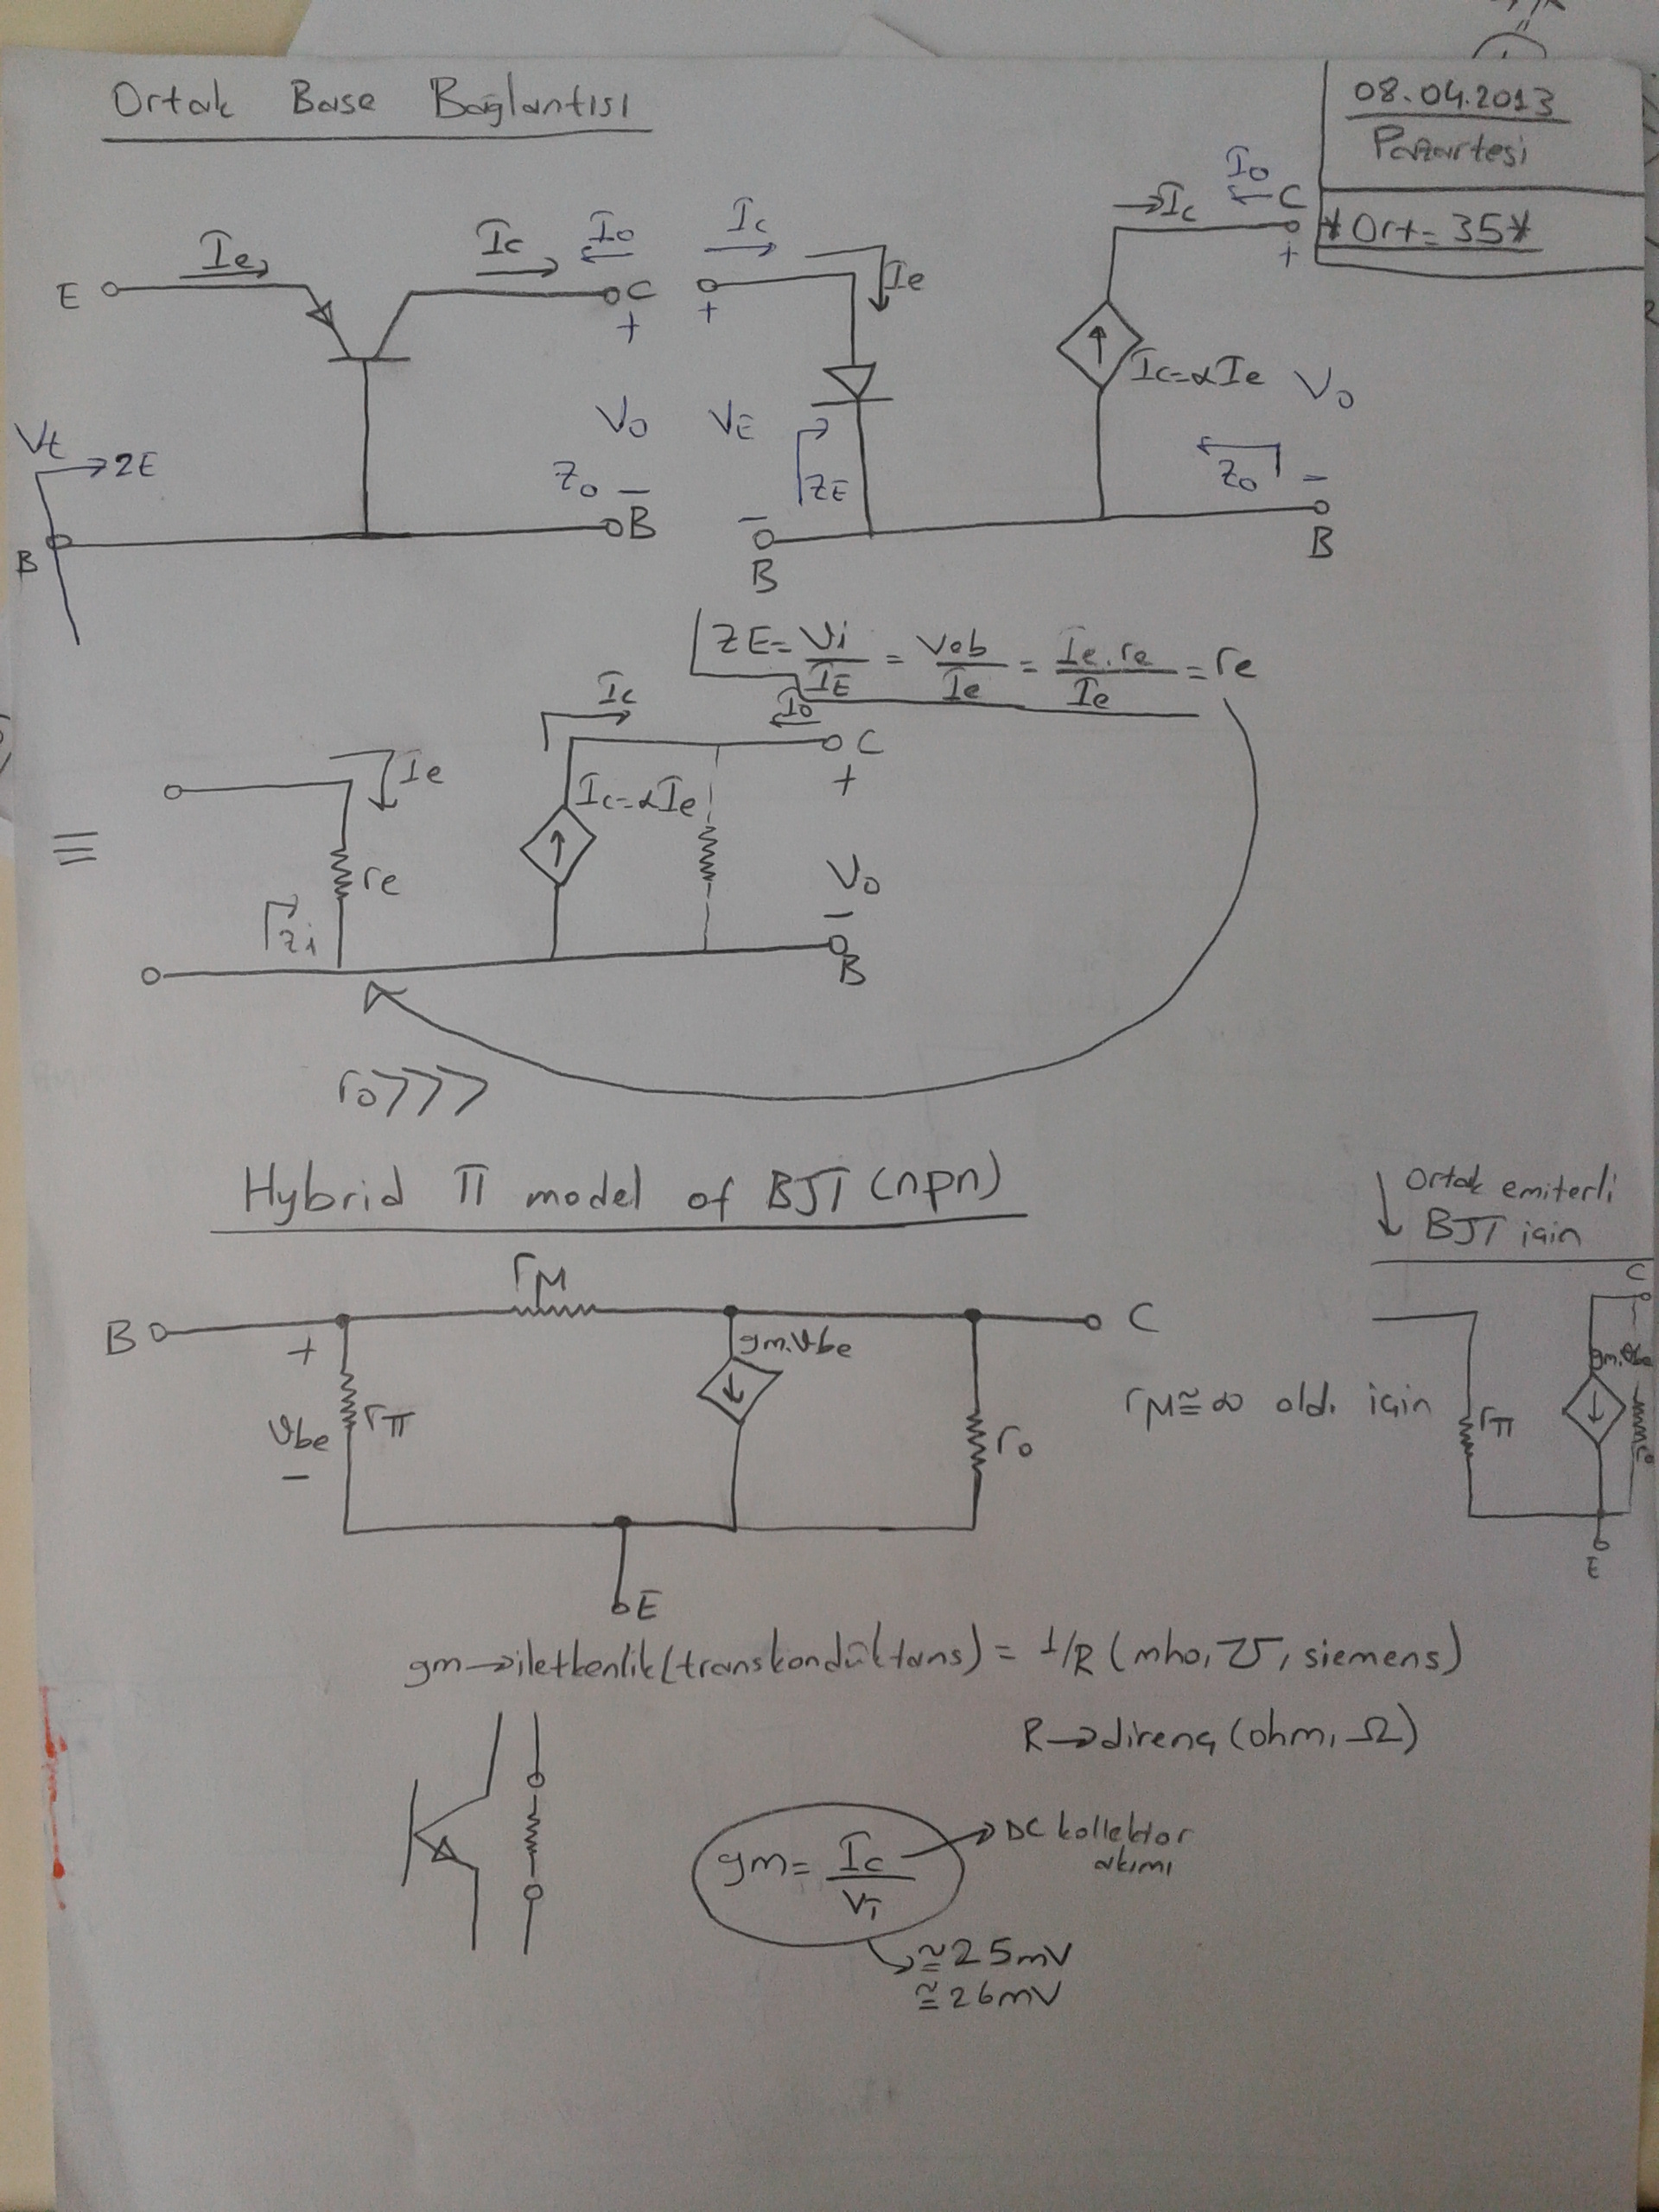 Ortak Base Bağlantısı
08.04.2013
Pazartesi
*Ort=35*
Ie
Ic
Io
E
C
+
Vt
ZE
B
Vo
Zo
-
B
Ic
Ie
+
VE
ZE
-
B
Ic
Io
C
+
Ic=αIe
Vo
Zo
-
B
ZE=Vi/IE = Veb/Ie = Ie.re/Ie = re
≡
Ie
re
Zi
Ic
Io
C
+
Ic=αIe
Vo
-
B
ro>>>
Hybrid π model of BJT (npn)
Ortak emiterli
BJT için
B
rμ
C
+
vbe
-
rπ
gm.vbe
ro
E
rμ≅∞ old. için
rπ
C
gm.vbe
ro
E
gm→iletkenlik(transkondüktans) = 1/R (mho, ℧, siemens)
R→direnç (ohm, Ω)
gm= Ic/VT
DC kollektör
akımı
≅25mV
≅26mV